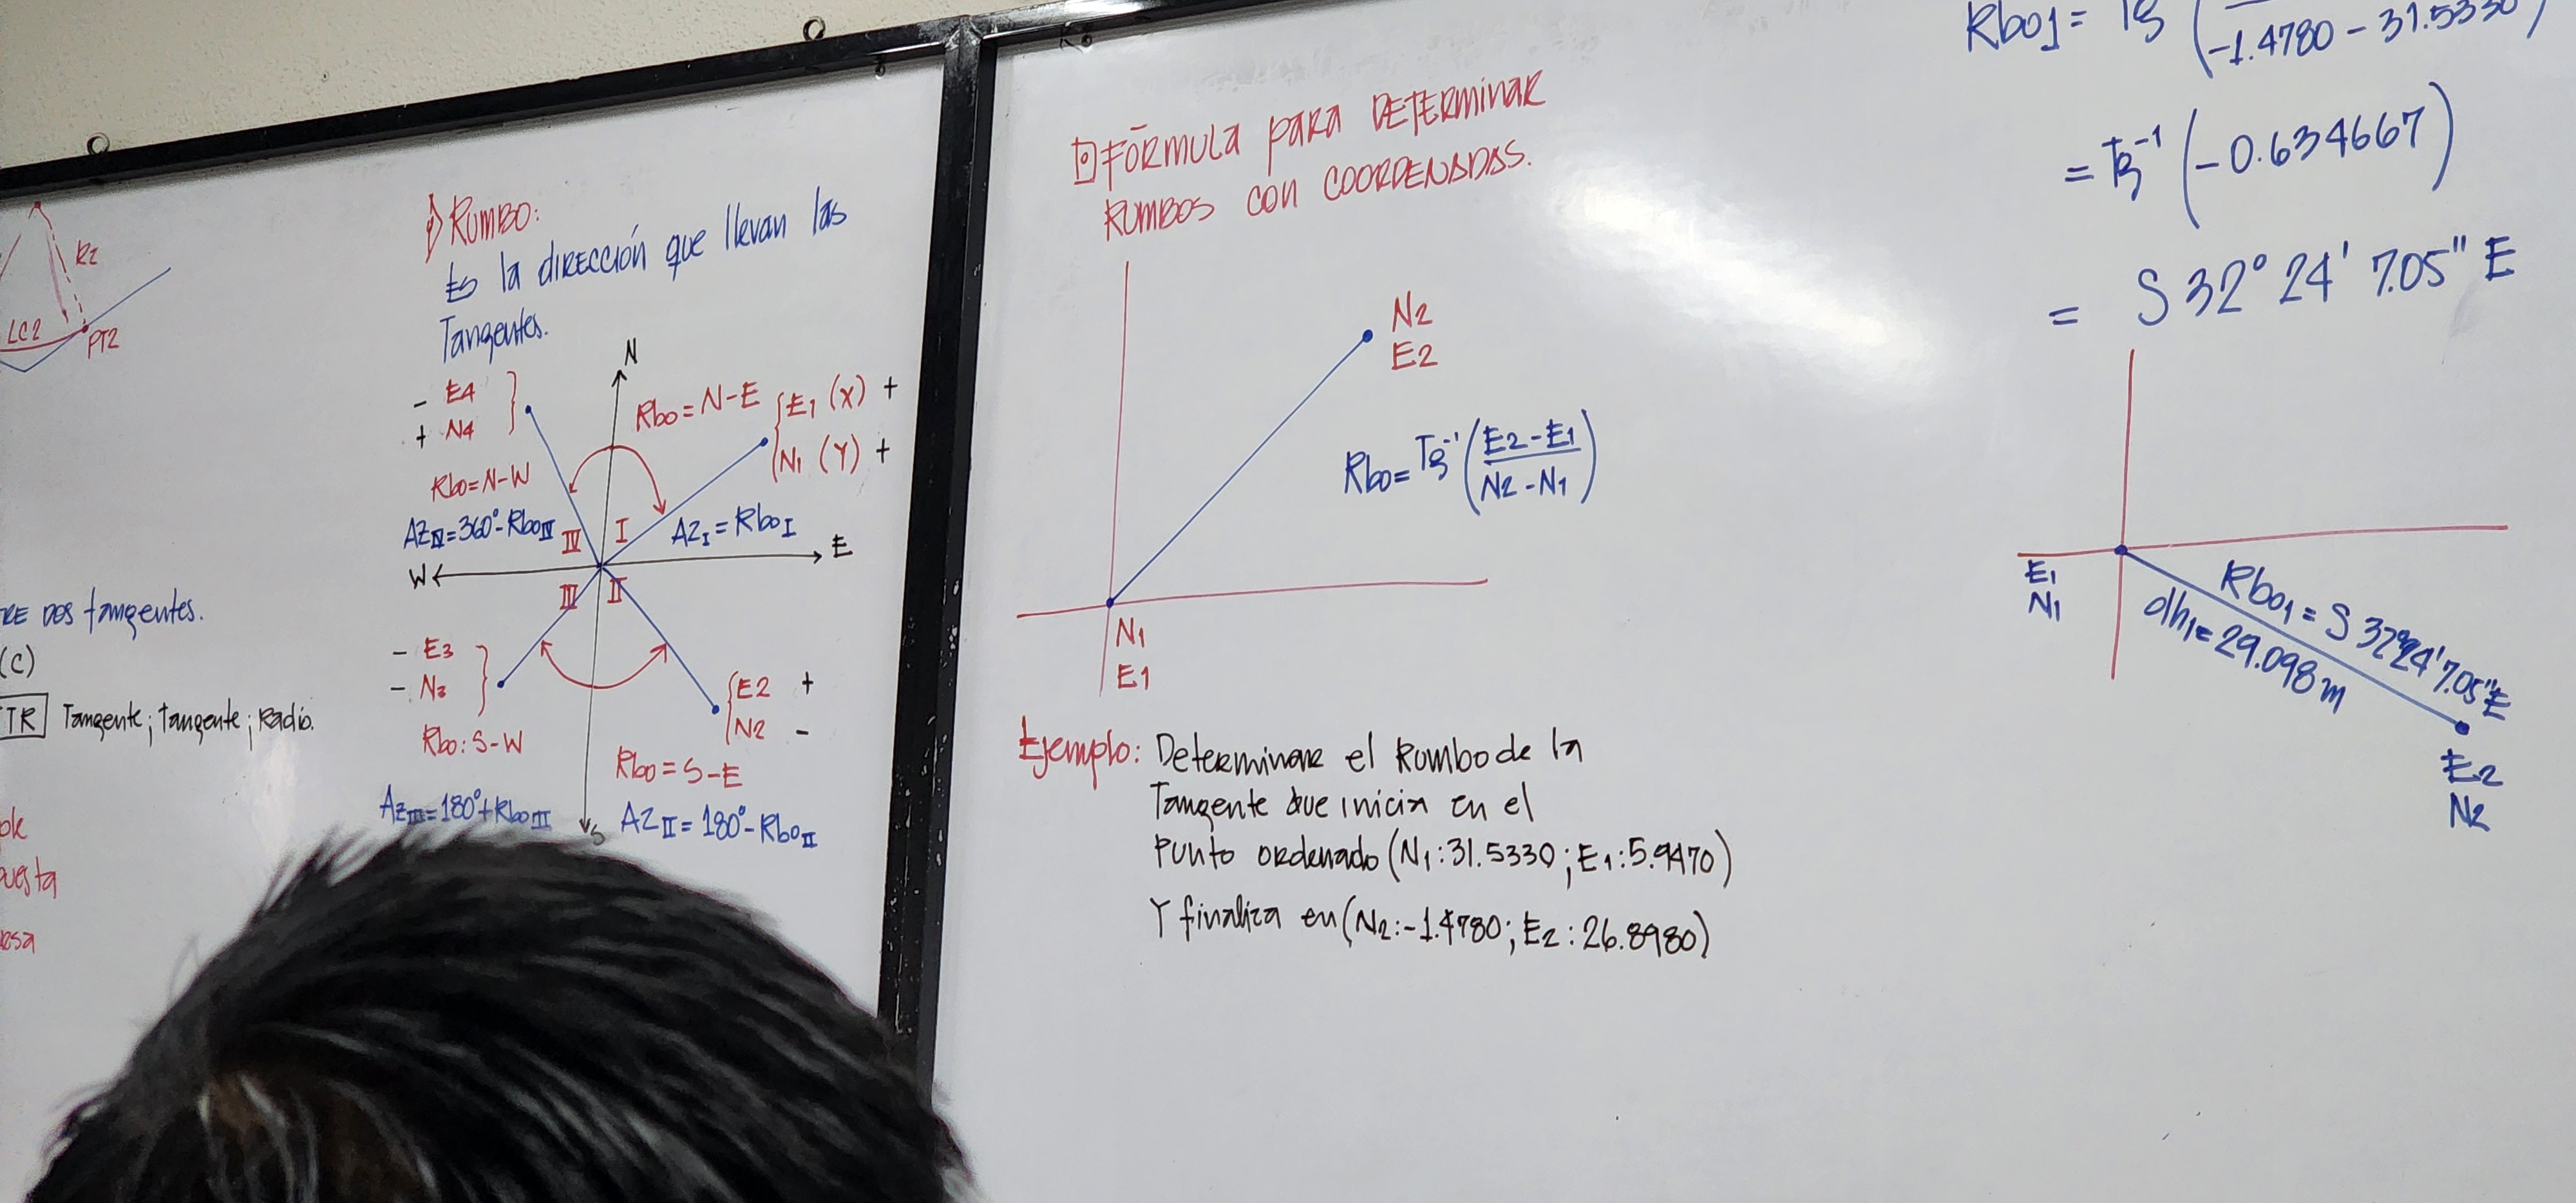 R2
LC2
PT2
RE DOS tangentes.
(C)
TR Tangente; tangente; Radio.
RUMBO:
Es la DIRECCIÓN que llevan las
Tangentes.
N
- E4
+ N4
Rbo = N-E
E1 (X) +
N1 (Y) +
Rbo = N-W
AZIV = 360° - RboIV
IV
I
AZI = RboI
W
E
III
II
- E3
- N3
Rbo: S-W
E2 +
N2 -
Rbo = S-E
AzIII = 180° + RboIII
S
AZII = 180° - RboII
FÓRMULA PARA DETERMINAR
RUMBOS CON COORDENADAS.
N2
E2
Rbo = Tg-1 (E2 - E1 / N2 - N1)
N1
E1
Ejemplo: Determinar el Rumbo de la
Tangente que inicia en el
Punto ordenado (N1: 31.5330; E1: 5.9470)
Y finaliza en (N2: -1.4780; E2: 26.8980)
Rbo1 = Tg
-1.4780 - 31.5330
= Tg-1 (-0.634667)
= S 32° 24' 7.05" E
E1
N1
Rbo1 = S 32°24'7.05"E
dh1 = 29.098 m
E2
N2